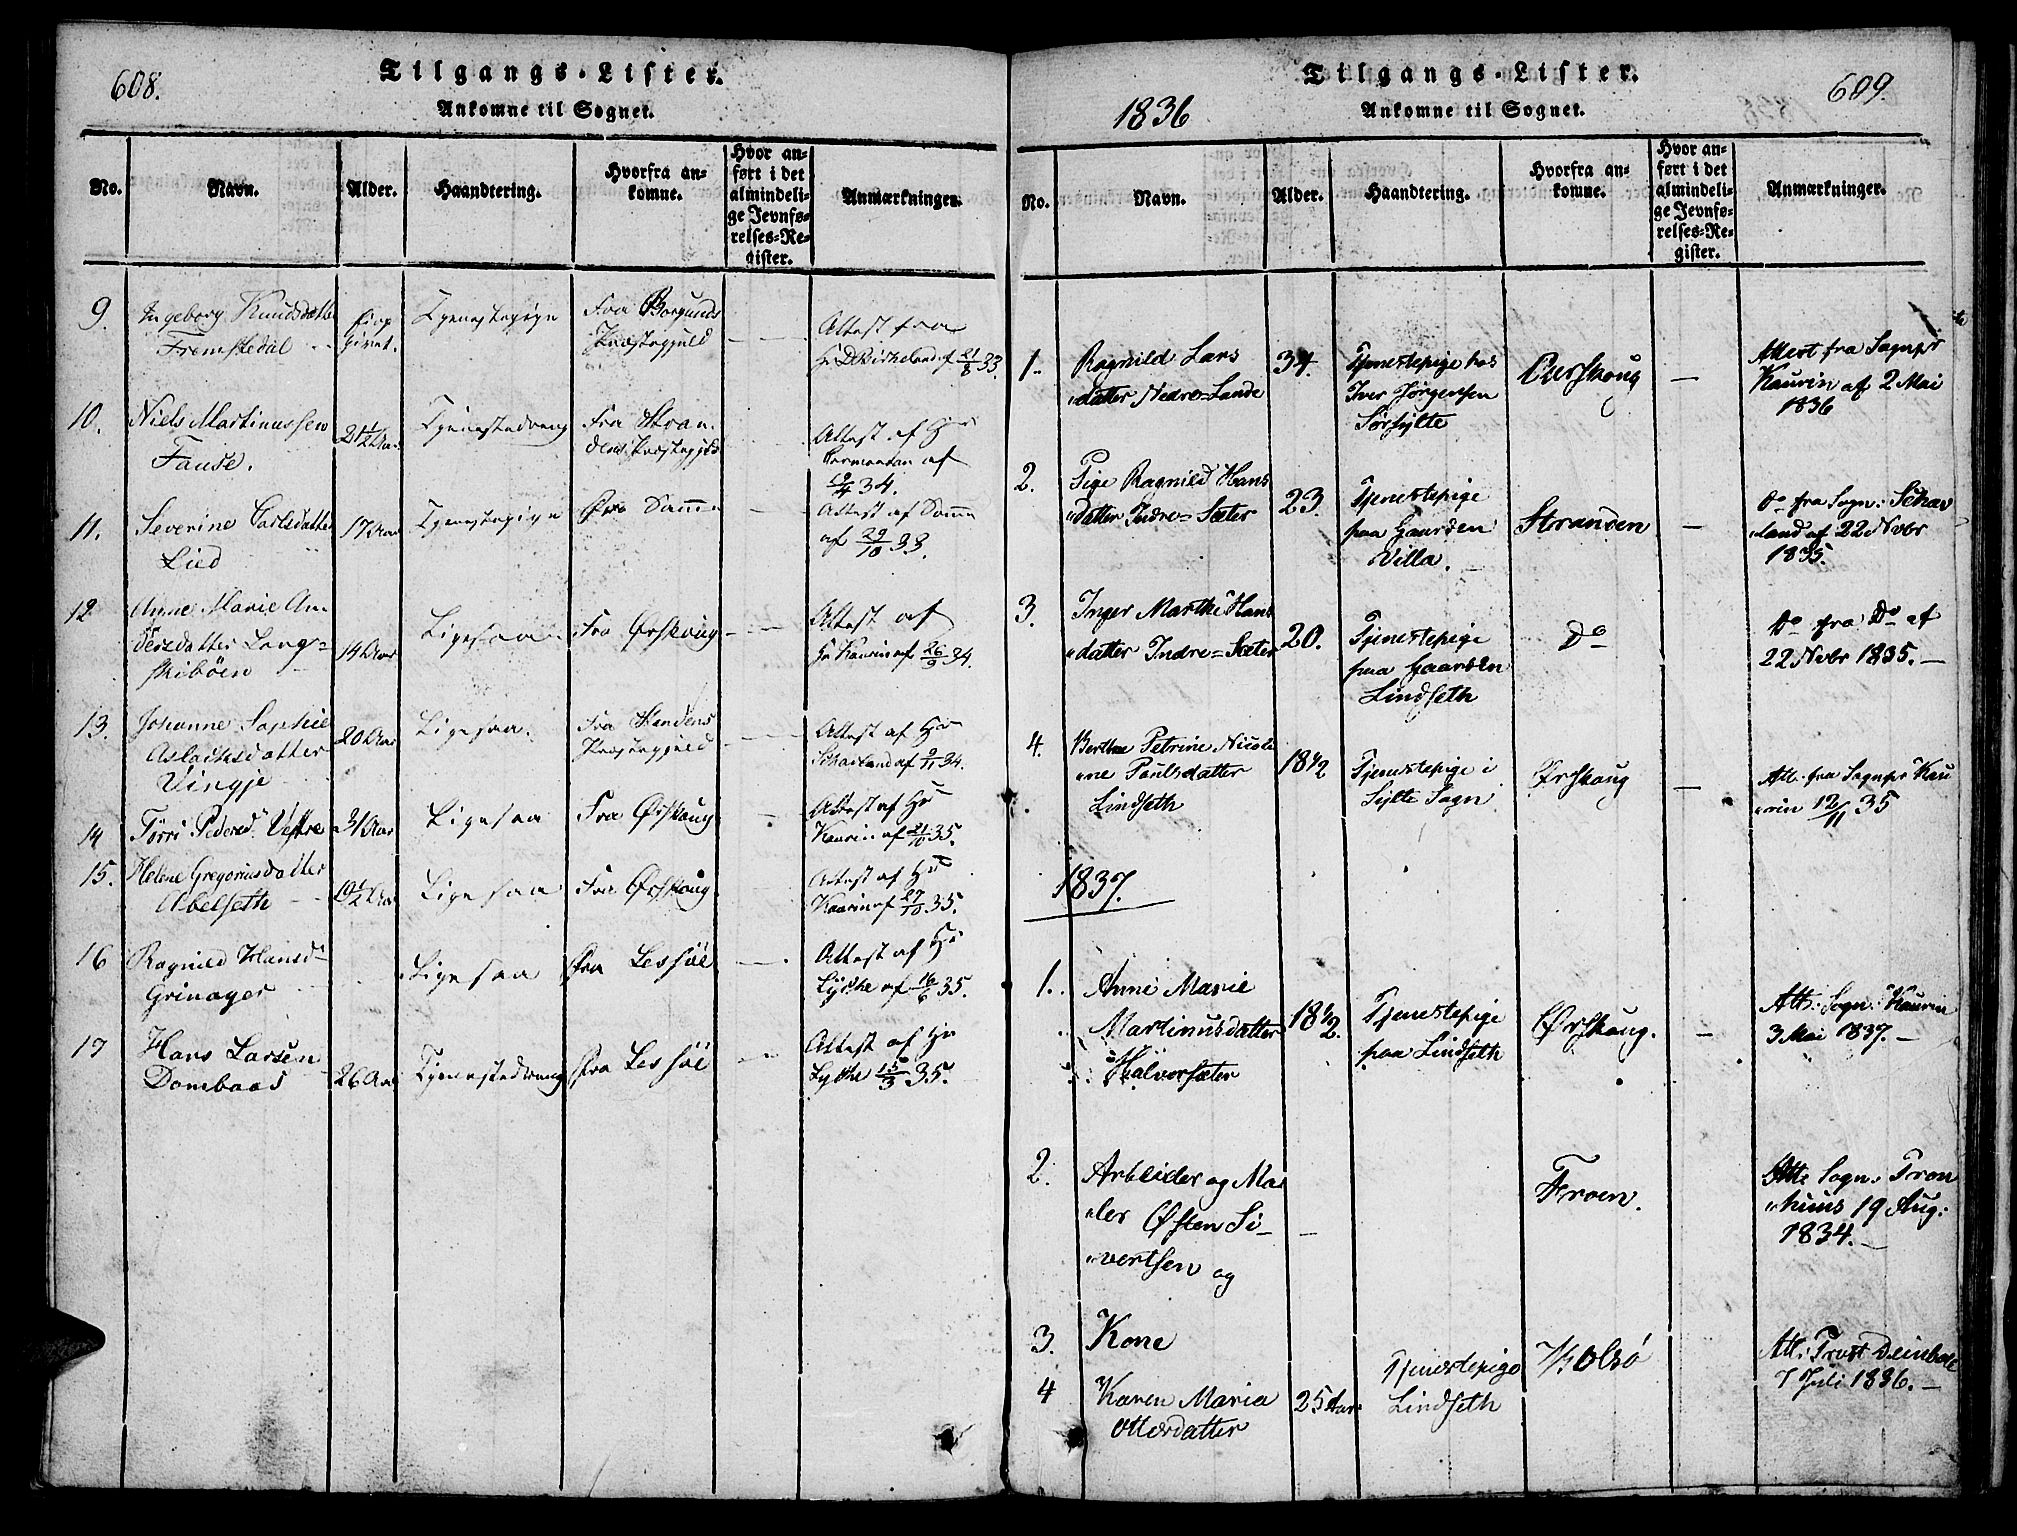 608.
Tilgangs-Lister.
Ankomne til Sognet.
No.
Navn.
Alder.
Haandtering.
Hvorfra an-
komne.
Hvor an-
ført i det
almindeli-
ge Jevnfø-
relses-Re-
gister.
Anmærkninger.
9.
Ingeborg Knudsdatter
Fremstedal
givet.
Tjenestepige
Fra Borgunds
Præstegjeld
Attest fra
Hr Birkeland af 21/8 33.
10.
Niels Martinussen
Fause.
21½ Aar
Tjenestedreng
Fra Stran
dens Præstegjeld
Attest af Hr
af
9/4 34.
11.
Severine Carlsdatter
Lied
17 Aar
Tjenestepige
Fra Samme
Attest af Samme
af 29/10 33.
12
Anne Marie An-
dersdatter Langs-
skibøen
14 Aar
Ligesaa
Fra Ørskoug
Attest af
Hr Kaurin af 26/9 34.
13.
Johanne Sophie
Aslaksdatter
Vingje
20 Aar
Ligesaa.
Fra Strandens
Præstegjeld
Attest af Hr
Schavland af 9/11 34.
14
Tørri Pedersd. Vestre
31 Aar
Ligesaa
Fra Ørskoug
Attest af Hr
Kaurin af 21/10 35.
15.
Helene Gregoriusdatter
Abelseth
19½ Aar
Ligesaa
Fra Ørskoug
Attest af Hr
Kaurin af 27/10 35.
16
Ragnild Hansd
Grinager
Ligesaa
Fra Lessøe
Attest af Hr
Lythe af 16/6 35.
17
Hans Larsen
Dombaas
26 Aar
Tjenestedreng
Fra Lessøe
Attest af Hr
Lythe 15/3 35.
1836
Tilgangs-Lister.
Ankomne til Sognet.
609.
No.
Navn.
Alder.
Haandtering.
Hvorfra an-
komne.
Hvor an-
ført i det
almindeli-
ge Jevnfø-
relses-Re-
gister.
Anmærkninger.
1.
Ragnild Lars
datter Nedre-Lande
34.
Tjenestepige hos
Iver Jørgensen
Sørsylte
Ørskoug
Attest fra Sognpr
Kaurin af 2 Mai
1836
2.
Pige Ragnild Hans
datter Indre-Sæter
23.
Tjenestepige
paa Gaarden
Villa.
Stranden
Do fra Sogn: Schav
land af 22 Nvbr
1835.
3.
Inger Marthe Hans
datter Indre-Sæter
20.
Tjenestepige
paa Gaarden
Lindseth
Do
Do fra Do af
22 Nvbr 1835.
4.
Berthe Petrine Nicoli
ne Paulsdatter
Lindseth
18½
Tjenestepige i
Sylte Sogn
Ørskoug
Att. fra Sognpr Kau
rin 12/11 35
1837.
1.
Anne Marie
Martinusdatter
Halvorsæter
18½.
Tjenestepige
paa Lindseth
Ørskoug.
Att: Sogn: Kaurin
3 Mai 1837.
2.
Arbeider og Ma
ler Østen Si-
vertsen og
Froen.
Att: Sogn: Tron
huus 19 Aug:
1834.
3.
Kone
4
Karen Maria
Ottersdatter
25 Aar
Tjenestepige
Lindseth
Att: Prost Deinboll
7 Juli 1836.